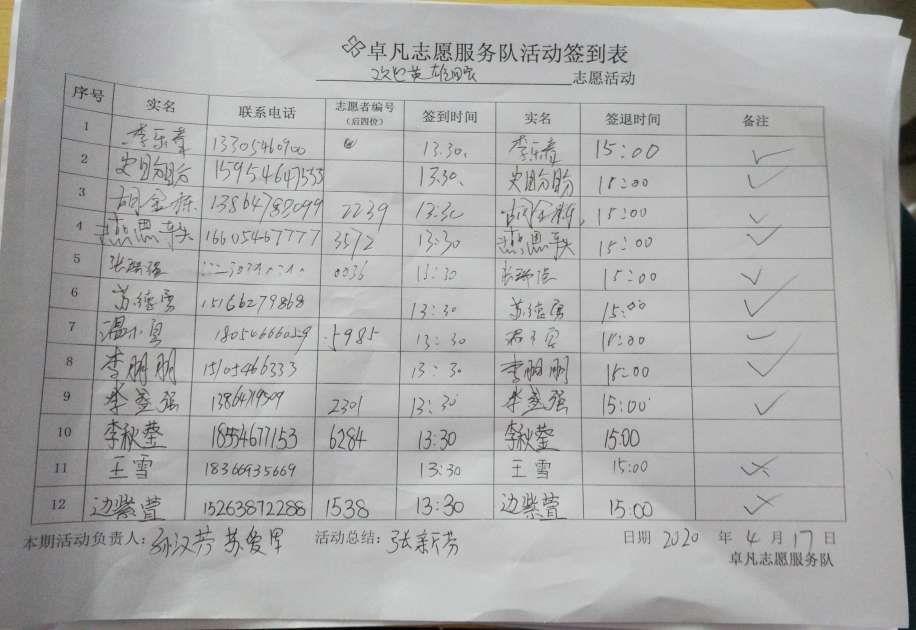 卓凡志愿服务队活动签到表
志愿活动
序号 实名 联系电话 志愿者编号（后四位） 签到时间 实名 签退时间 备注
1 李乐意 13305460900 13:30 李乐意 15:00 ✓
2 1595464 13:30 15:00 ✓
3 胡金栋 13864789099 2239 13:30 15:00 ✓
4 燕思 16605467777 3572 13:30 燕思 15:00 ✓
5 张 0036 13:30 张 15:00 ✓
6 苏德勇 15166279868 13:30 苏德勇 15:00 ✓
7 温 18054666029 5985 13:30 15:00
8 李朋朋 15105466333 13:30 李朋朋 15:00 ✓
9 李盛强 2301 13:30 李盛强 15:00 ✓
10 李秋莹 18554677153 6284 13:30 李秋莹 15:00
11 王雪 18366935669 13:30 王雪 15:00
12 边紫萱 15263872288 1538 13:30 边紫萱 15:00
本期活动负责人：孙汉芳 苏爱军 活动总结：张新芬 日期 2020 年 4 月 17 日
卓凡志愿服务队